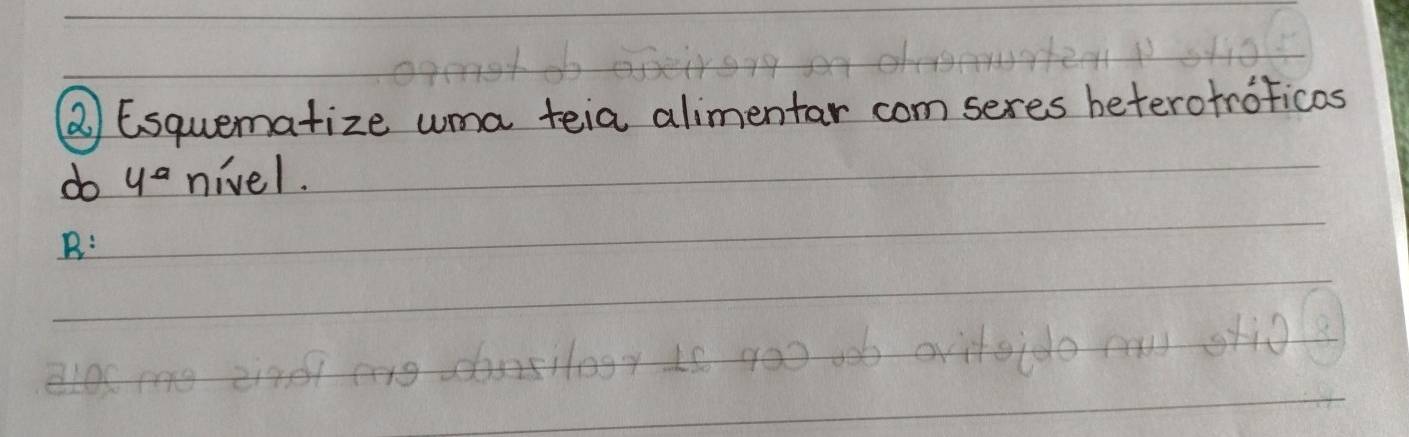 ② Esquematize uma teia alimentar com seres heterotróficos
do 4ª nível.
R: